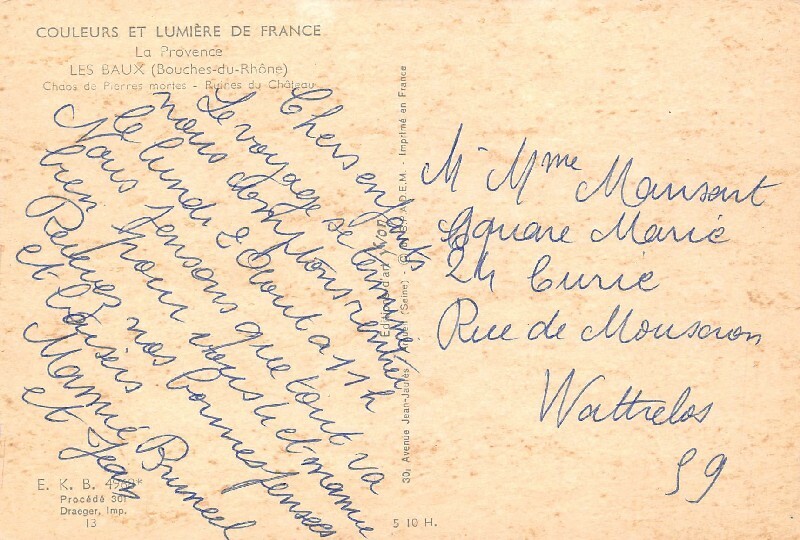 COULEURS ET LUMIÈRE DE FRANCE
La Provence
LES BAUX (Bouches-du-Rhône)
Chaos de Pierres mortes - Ruines du Château
Chers enfants
Le voyage se termine
nous comptons rentrer
le lundi 2 Aout a 11h
Nous pensons que tout va
bien pour vous et mamie
Recevez nos bonnes pensées
et baisers
Mamie Bruneel
et Jean
E. K. B.
Procédé 301
Draeger, Imp.
13
5 10 H.
30, Avenue Jean-Jaurès (Seine) - Imprimé en France
Mr Mme Mansart
Square Marie
24 Curie
Rue de Mouscron
Wattrelos
59